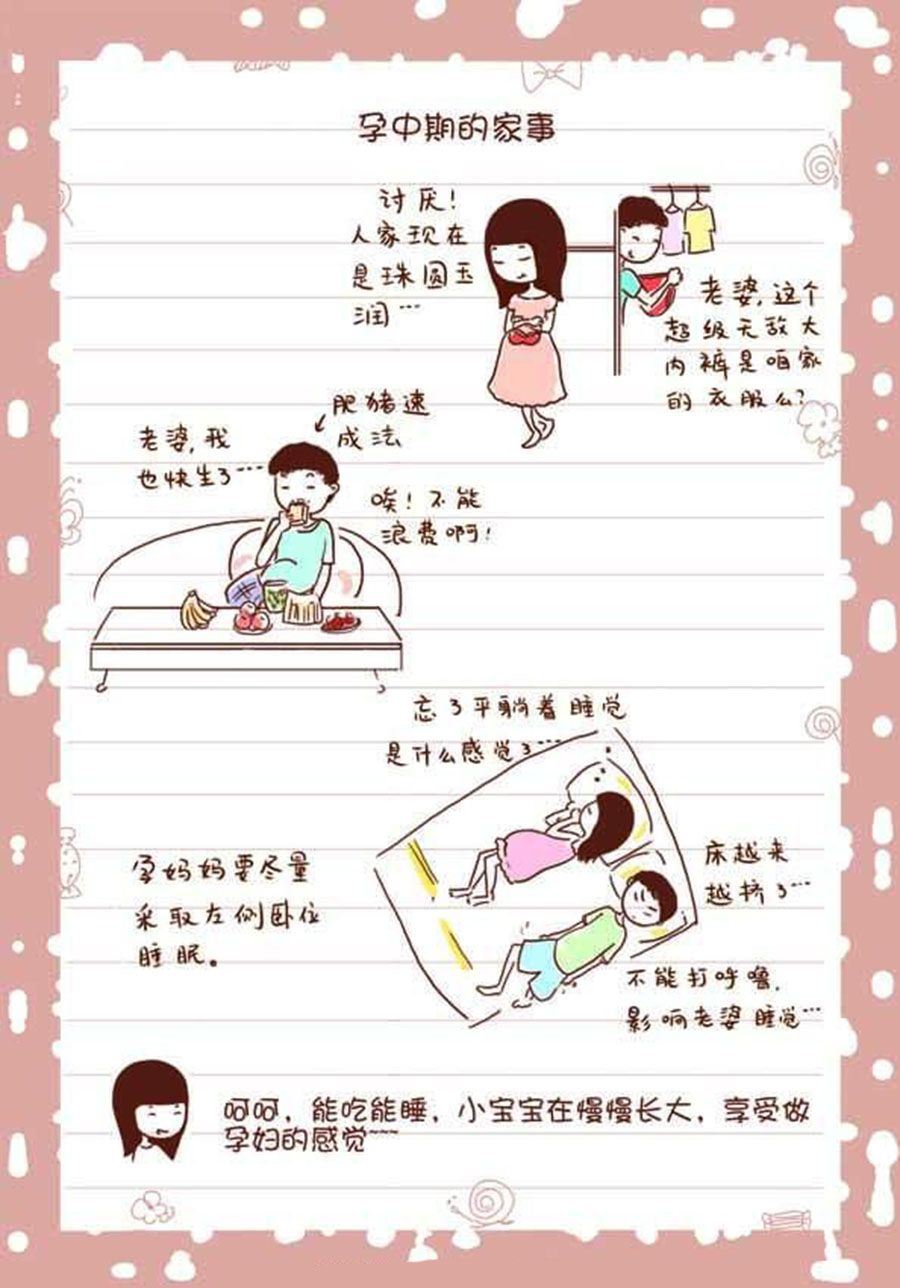 孕中期的家事
讨厌！
人家现在
是珠圆玉
润…
老婆,这个
超级无敌大
内裤是咱家
的衣服么?
肥猪速
成法
老婆,我
也快生了…
唉！不能
浪费啊！
忘了平躺着睡觉
是什么感觉了…
孕妈妈要尽量
采取左侧卧位
睡眠。
床越来
越挤了…
不能打呼噜,
影响老婆睡觉…
呵呵，能吃能睡，小宝宝在慢慢长大，享受做
孕妇的感觉~~~